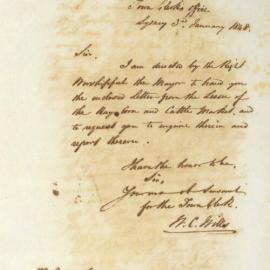 Town Clerks Office
Sydney 3rd January 1848.
Sir,
I am directed by the Right
Worshipful the Mayor to hand you
the enclosed Letter from the Lessee of
the Hay, Corn and Cattle Market, and
to request you to enquire therein and
report thereon.
I have the honor to be,
Sir,
Your most Servant
for the Town Clerk.
W. C. Wills